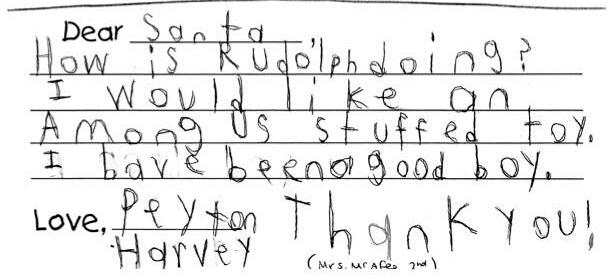 Dear Santa
How is Rudolph doing?
I would like an
Among Us stuffed toy.
I have been a good boy.
Love, Peyton Thank you!
Harvey
(Mrs. McAfee 2nd)